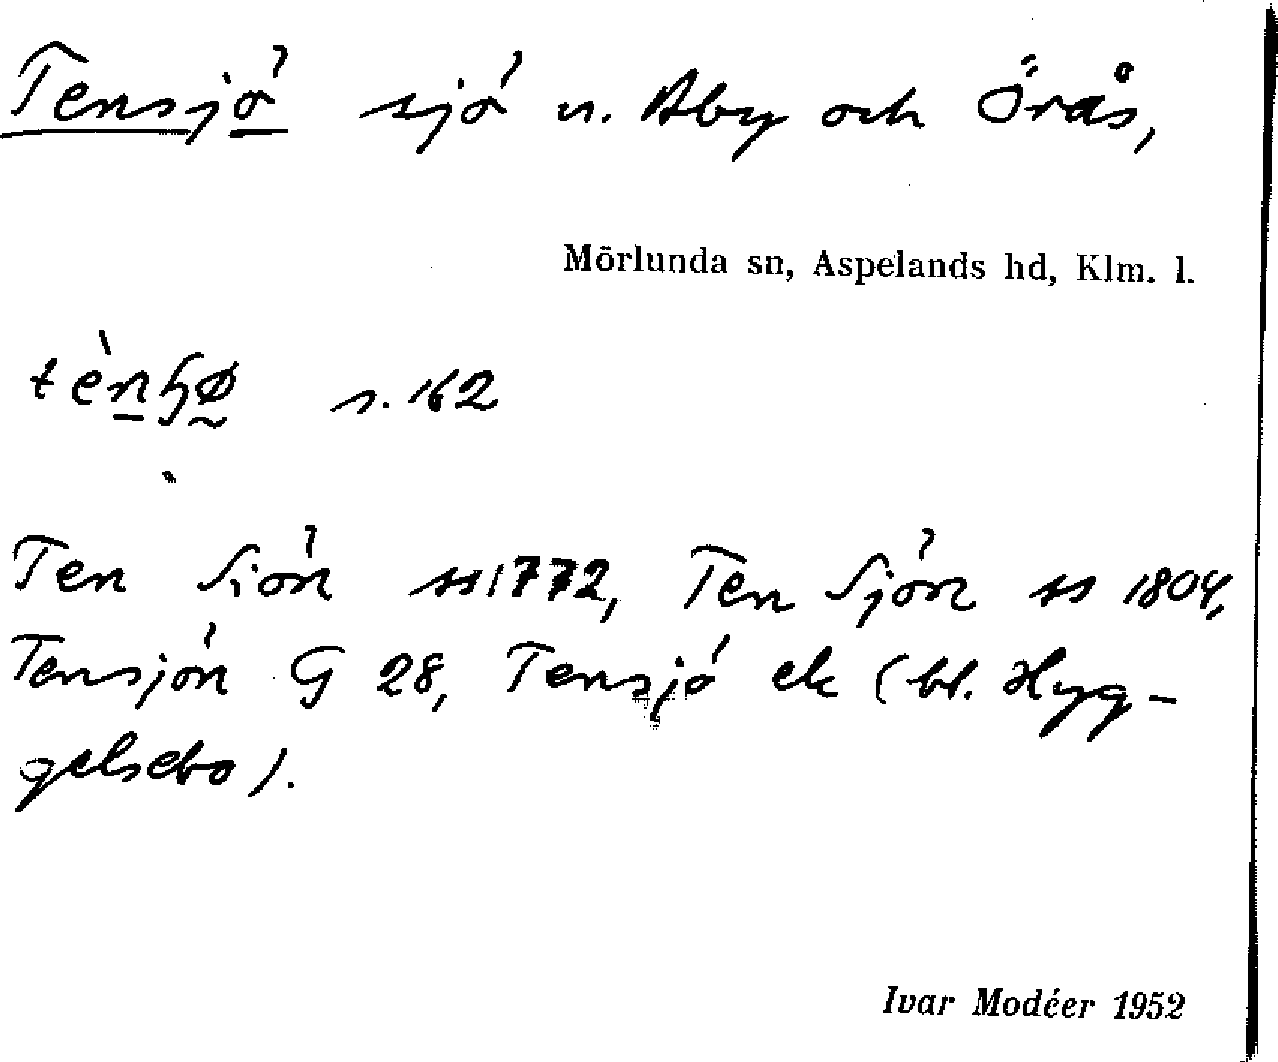 Tensjö sjö u. Åby och Örås,
Mörlunda sn, Aspelands hd, Klm. l.
s. 162
Ten Siön ss 1772, Ten Sjön ss 1804,
Tensjön G 28, Tensjö ek (bl. Hyg-
gelsebo).
Ivar Modéer 1952